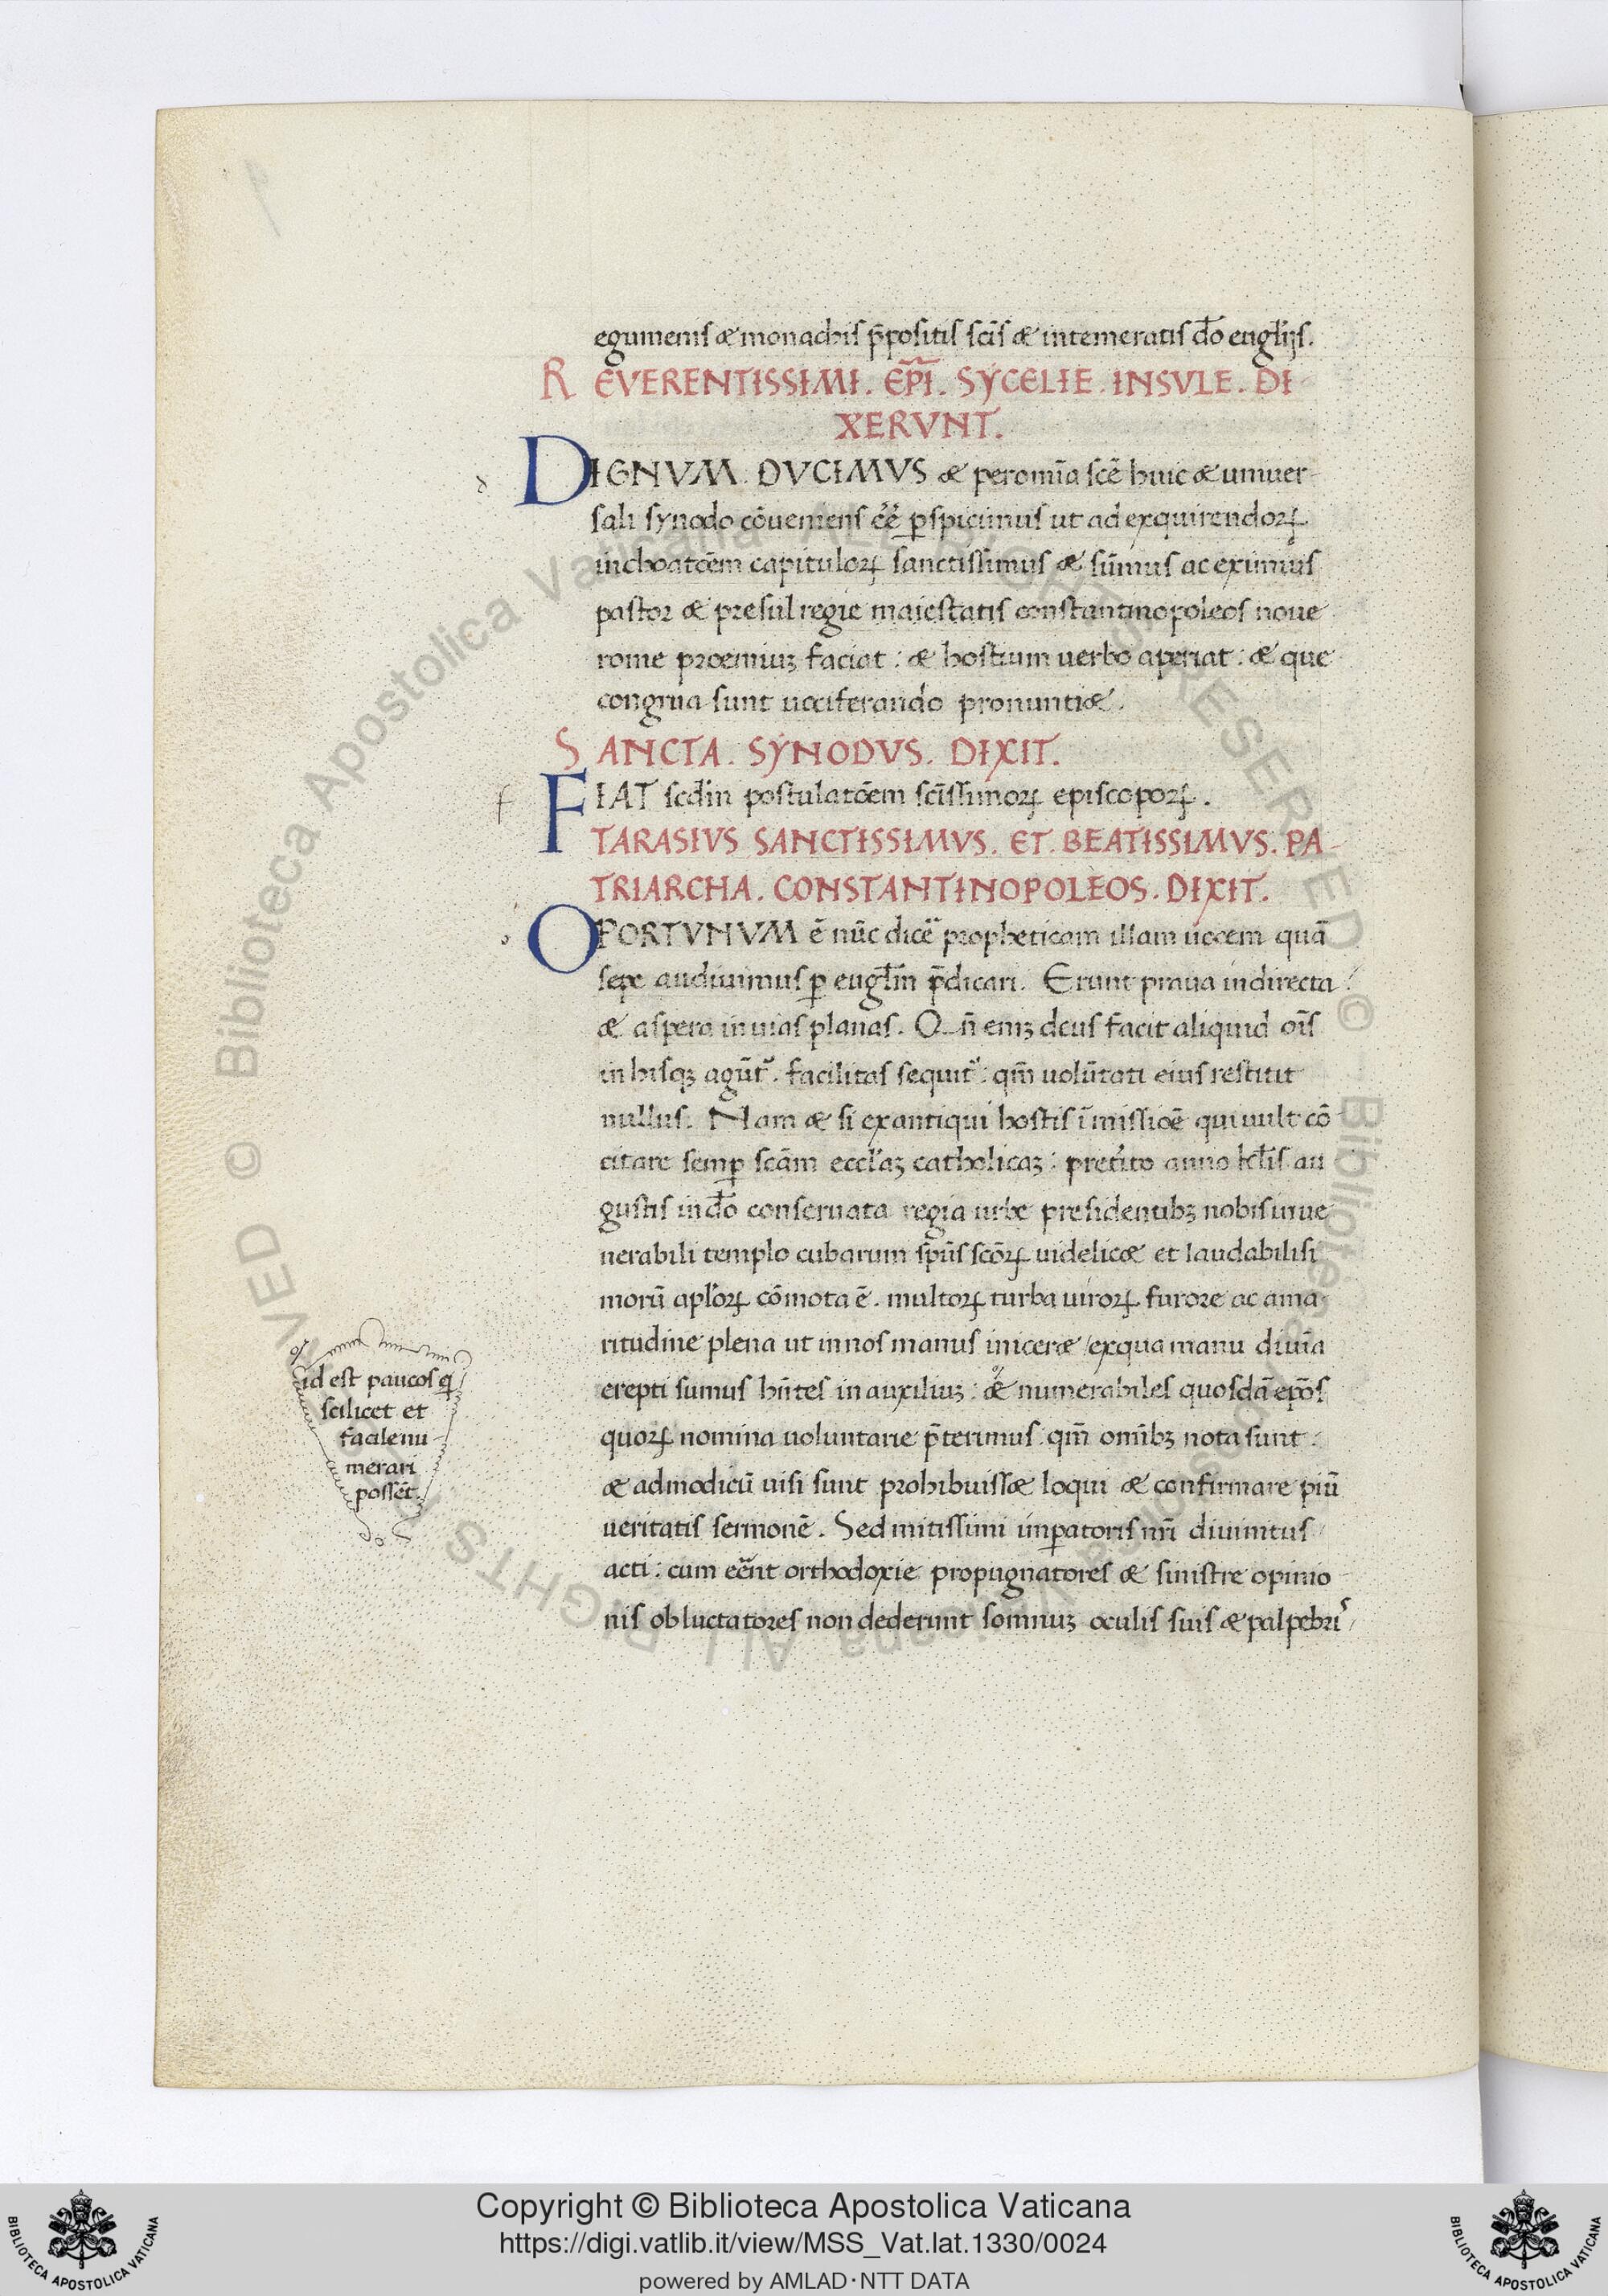 egumenis & monachis p̄positis scīs & intemeratis dō euglijs.
REVERENTISSIMI. EP̄I. SYCELIE. INSVLE. DI
XERVNT.
d
DIGNVM. DVCIMVS & per omīa scē huic & uniuer-
sali synodo cōueniens eē̄ ꝑspicimus ut ad exquirendoꝝ
inchoatōem capituloꝝ sanctissimus & sūmus ac eximius
pastor & presul regie maiestatis constantinopoleos noue
rome proemiuꝫ faciat: & hostium uerbo aperiat: & que
congrua sunt uociferando pronunti&.
SANCTA. SYNODVS. DIXIT.
f
FIAT scdm postulatōem scīssimoꝝ episcopoꝝ.
TARASIVS SANCTISSIMVS. ET. BEATISSIMVS. PA-
TRIARCHA. CONSTANTINOPOLEOS. DIXIT.
o
OPORTVNVM ē nūc dicē propheticam illam uocem quā
sepe audiuimus ꝑ euglm̄ p̄dicari. Erunt praua in directa
& aspera in uias planas. Qn̄ eniꝫ deus facit aliquid oīs
in hisqꝫ agūt᷑. facilitas sequit᷑: qm̄ uolūtati eius restitit
nullus. Nam & si ex antiqui hostis īmissiōe qui uult cō
citare semꝑ scām eccl'aꝫ catholicaꝫ: pret'ito anno kl̄is au
gustis in dō conseruata regia urbe presidentibꝫ nobis in ue
nerabili templo cubarum sp̄us scōꝝ uidelic& et laudabilisi
morū apl'oꝝ cōmota ē. multoꝝ turba uiroꝝ furore ac ama
ritudine plena ut in nos manus inicer& / ex qua manu diuīa
erepti sumus hn̄tes in auxiliuꝫ: & numerabiles quosdā ep̄os
quoꝝ nomina uoluntarie p̄terimus qm̄ omībꝫ nota sunt:
& ad modicū uisi sunt prohibuiss& loqui & confirmare piū
ueritatis sermonē. Sed mitissimi imꝑatoris nr̄i diuinitus
acti: cum eēnt orthodoxie propugnatores & sinistre opinio
nis obluctatores non dederunt somnuꝫ oculis suis & palpebris
id est paucos q
scilicet et
facile nu-
merari
possēt.
Copyright © Biblioteca Apostolica Vaticana
https://digi.vatlib.it/view/MSS_Vat.lat.1330/0024
powered by AMLAD·NTT DATA
BIBLIOTECA APOSTOLICA VATICANA
BIBLIOTECA APOSTOLICA VATICANA
© Biblioteca Apostolica Vaticana ALL RIGHTS RESERVED © Biblioteca Apostolica Vaticana ALL RIGHTS RESERVED